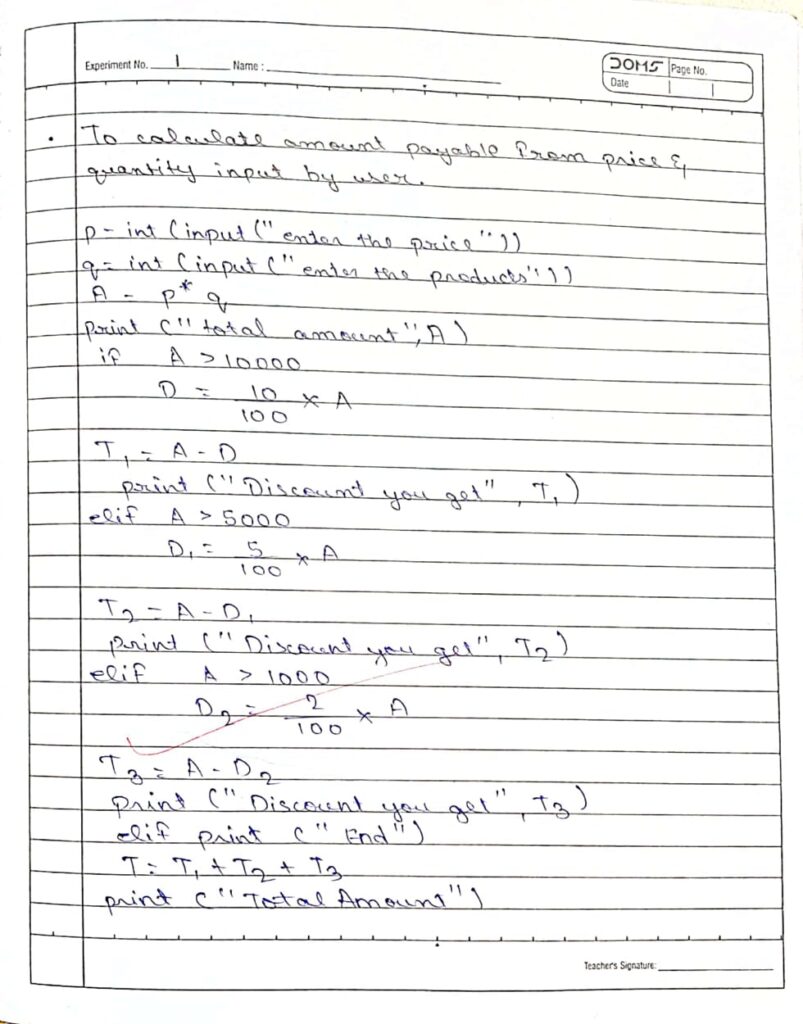 Experiment No. 1 Name :
DOMS Page No.
Date
• To calculate amount payable from price &
quantity input by user.
p = int (input (" enter the price"))
q = int (input (" enter the products"))
A = p * q
print (" total amount", A)
if A > 10000
D = 10/100 × A
T₁ = A - D
print (" Discount you get" , T₁)
elif A > 5000
D₁ = 5/100 × A
T₂ = A - D₁
print (" Discount you get", T₂)
elif A > 1000
D₂ = 2/100 × A
T₃ = A - D₂
print (" Discount you get" , T₃)
elif print (" End")
T = T₁ + T₂ + T₃
print (" Total Amount")
Teacher's Signature: